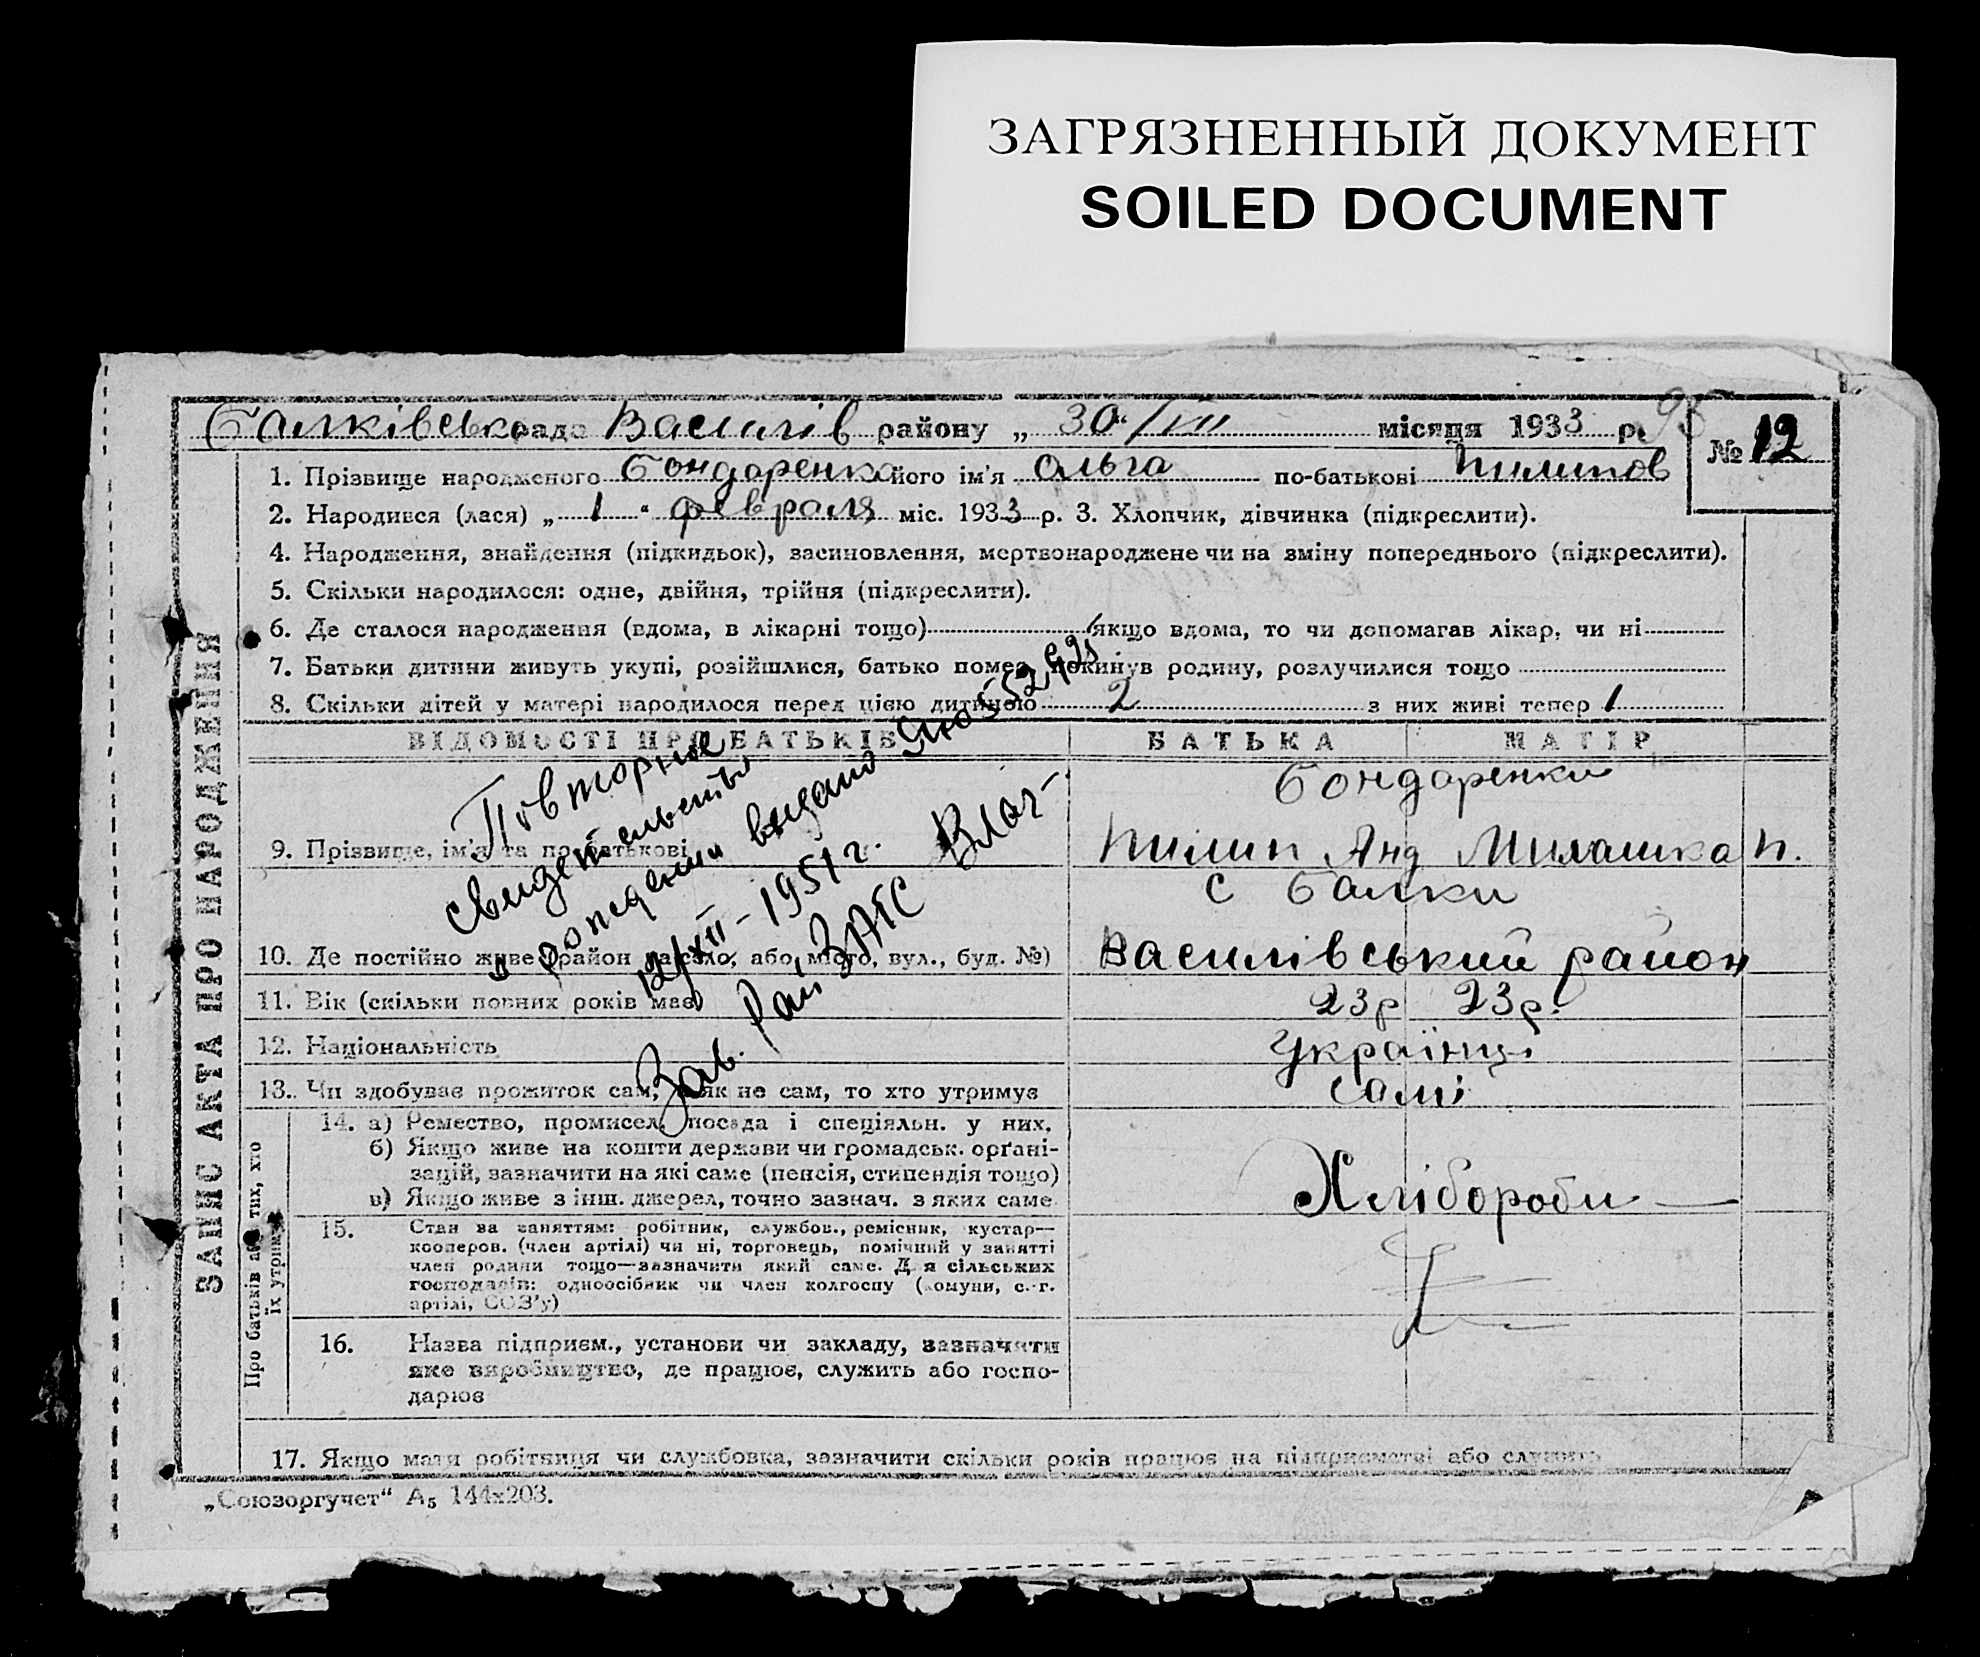 ЗАГРЯЗНЕННЫЙ ДОКУМЕНТ
SOILED DOCUMENT
Балківська рада Василів району „ 30/VIII місяця 1933 р. 95
№ 12
1. Прізвище народженого Бондаренко його ім'я Ольга по-батькові Пилипов
2. Народився (лася) „ 1 “ февраля міс. 1933 р. 3. Хлопчик, дівчинка (підкреслити).
4. Народження, знайдення (підкидьок), засиновлення, мертвонароджене чи на зміну попереднього (підкреслити).
5. Скільки народилося: одне, двійня, трійня (підкреслити).
6. Де сталося народження (вдома, в лікарні тощо) якщо вдома, то чи допомагав лікар, чи ні
7. Батьки дитини живуть укупі, розійшлися, батько помер, покинув родину, розлучилися тощо
8. Скільки дітей у матері народилося перед цією дитиною 2 з них живі тепер 1
ВІДОМОСТІ ПРО БАТЬКІВ БАТЬКА МАТІР
Бондаренки
9. Прізвище, ім'я та по-батькові Пилип Анд Милашка П.
с Балки
10. Де постійно живе (район та село, або місто, вул., буд. №) Василівський район
11. Вік (скільки повних років має) 23р 23р.
12. Національність Українці
13. Чи здобуває прожиток сам, а як не сам, то хто утримує самі
14. а) Ремество, промисел, посада і спеціяльн. у них.
б) Якщо живе на кошти держави чи громадськ. орґані-
зацій, зазначити на які саме (пенсія, стипендія тощо)
в) Якщо живе з інш. джерел, точно зазнач. з яких саме
Хлібороби —
15. Стан за заняттям: робітник, службов., ремісник, кустар—
кооперов. (член артілі) чи ні, торговець, помічний у занятті
член родини тощо—зазначити який саме. Для сільських
господарів: одноосібник чи член колгоспу (комуни, с.-г.
артілі, СОЗ'у)
16. Назва підприєм., установи чи закладу, зазначити
яке виробництво, де працює, служить або госпо-
дарює
17. Якщо мати робітниця чи службовка, зазначити скільки років працює на підприємстві або служить
„Союзоргучет“ А₅ 144х203.
ЗАПИС АКТА ПРО НАРОДЖЕННЯ
Про батьків або тих, хто
їх утримує
Повторное
свидетельство
о рождении выдано
12/XII - 1951 г.
Зав. Рай ЗАГС